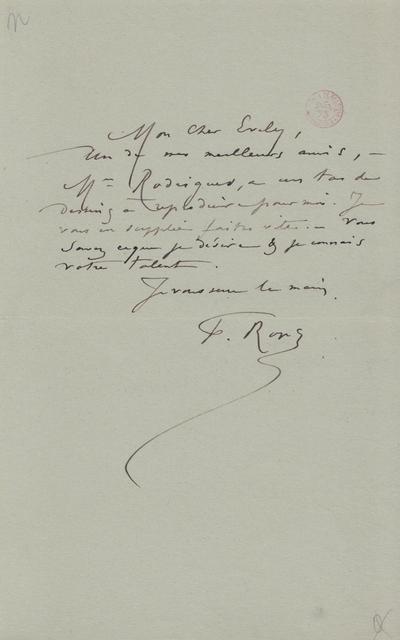 Mon Cher Evely,
Un de mes meilleurs amis, –
Mr Rodrigues, a un tas de
dessins à reproduire pour moi. Je
vous en supplie faites vite. – Vous
savez ce que je désire & je connais
votre talent.
Je vous serre la main,
F. Rops